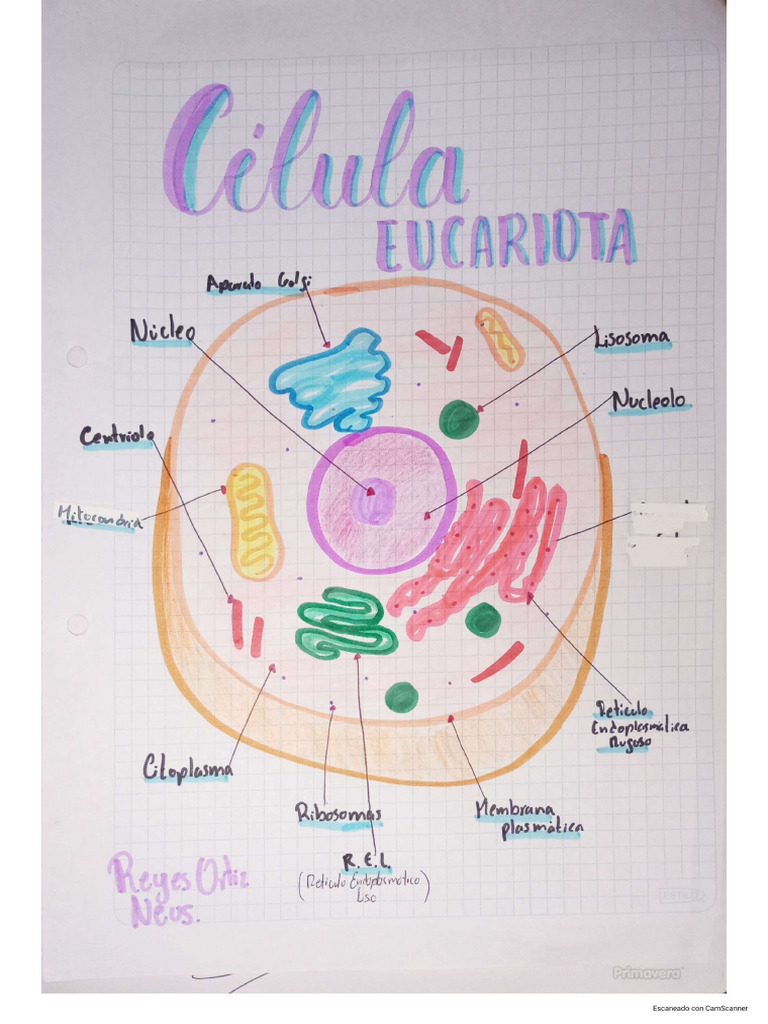 Célula
EUCARIOTA
Aparato Golgi
Núcleo
Lisosoma
Nucleolo
Centriolo
Mitocondria
Reticulo
Endoplasmática
Rugoso
Citoplasma
Ribosomas
Membrana
plasmática
R.E.L.
(Reticulo Endoplasmatico
Liso)
Reyes Ortiz
Neus.
ESTILO
Primavera
Escaneado con CamScanner